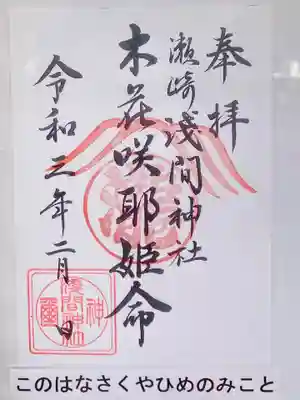 奉拝
瀬崎浅間神社
木花咲耶姫命
令和三年二月 日
浅間神社
このはなさくやひめのみこと